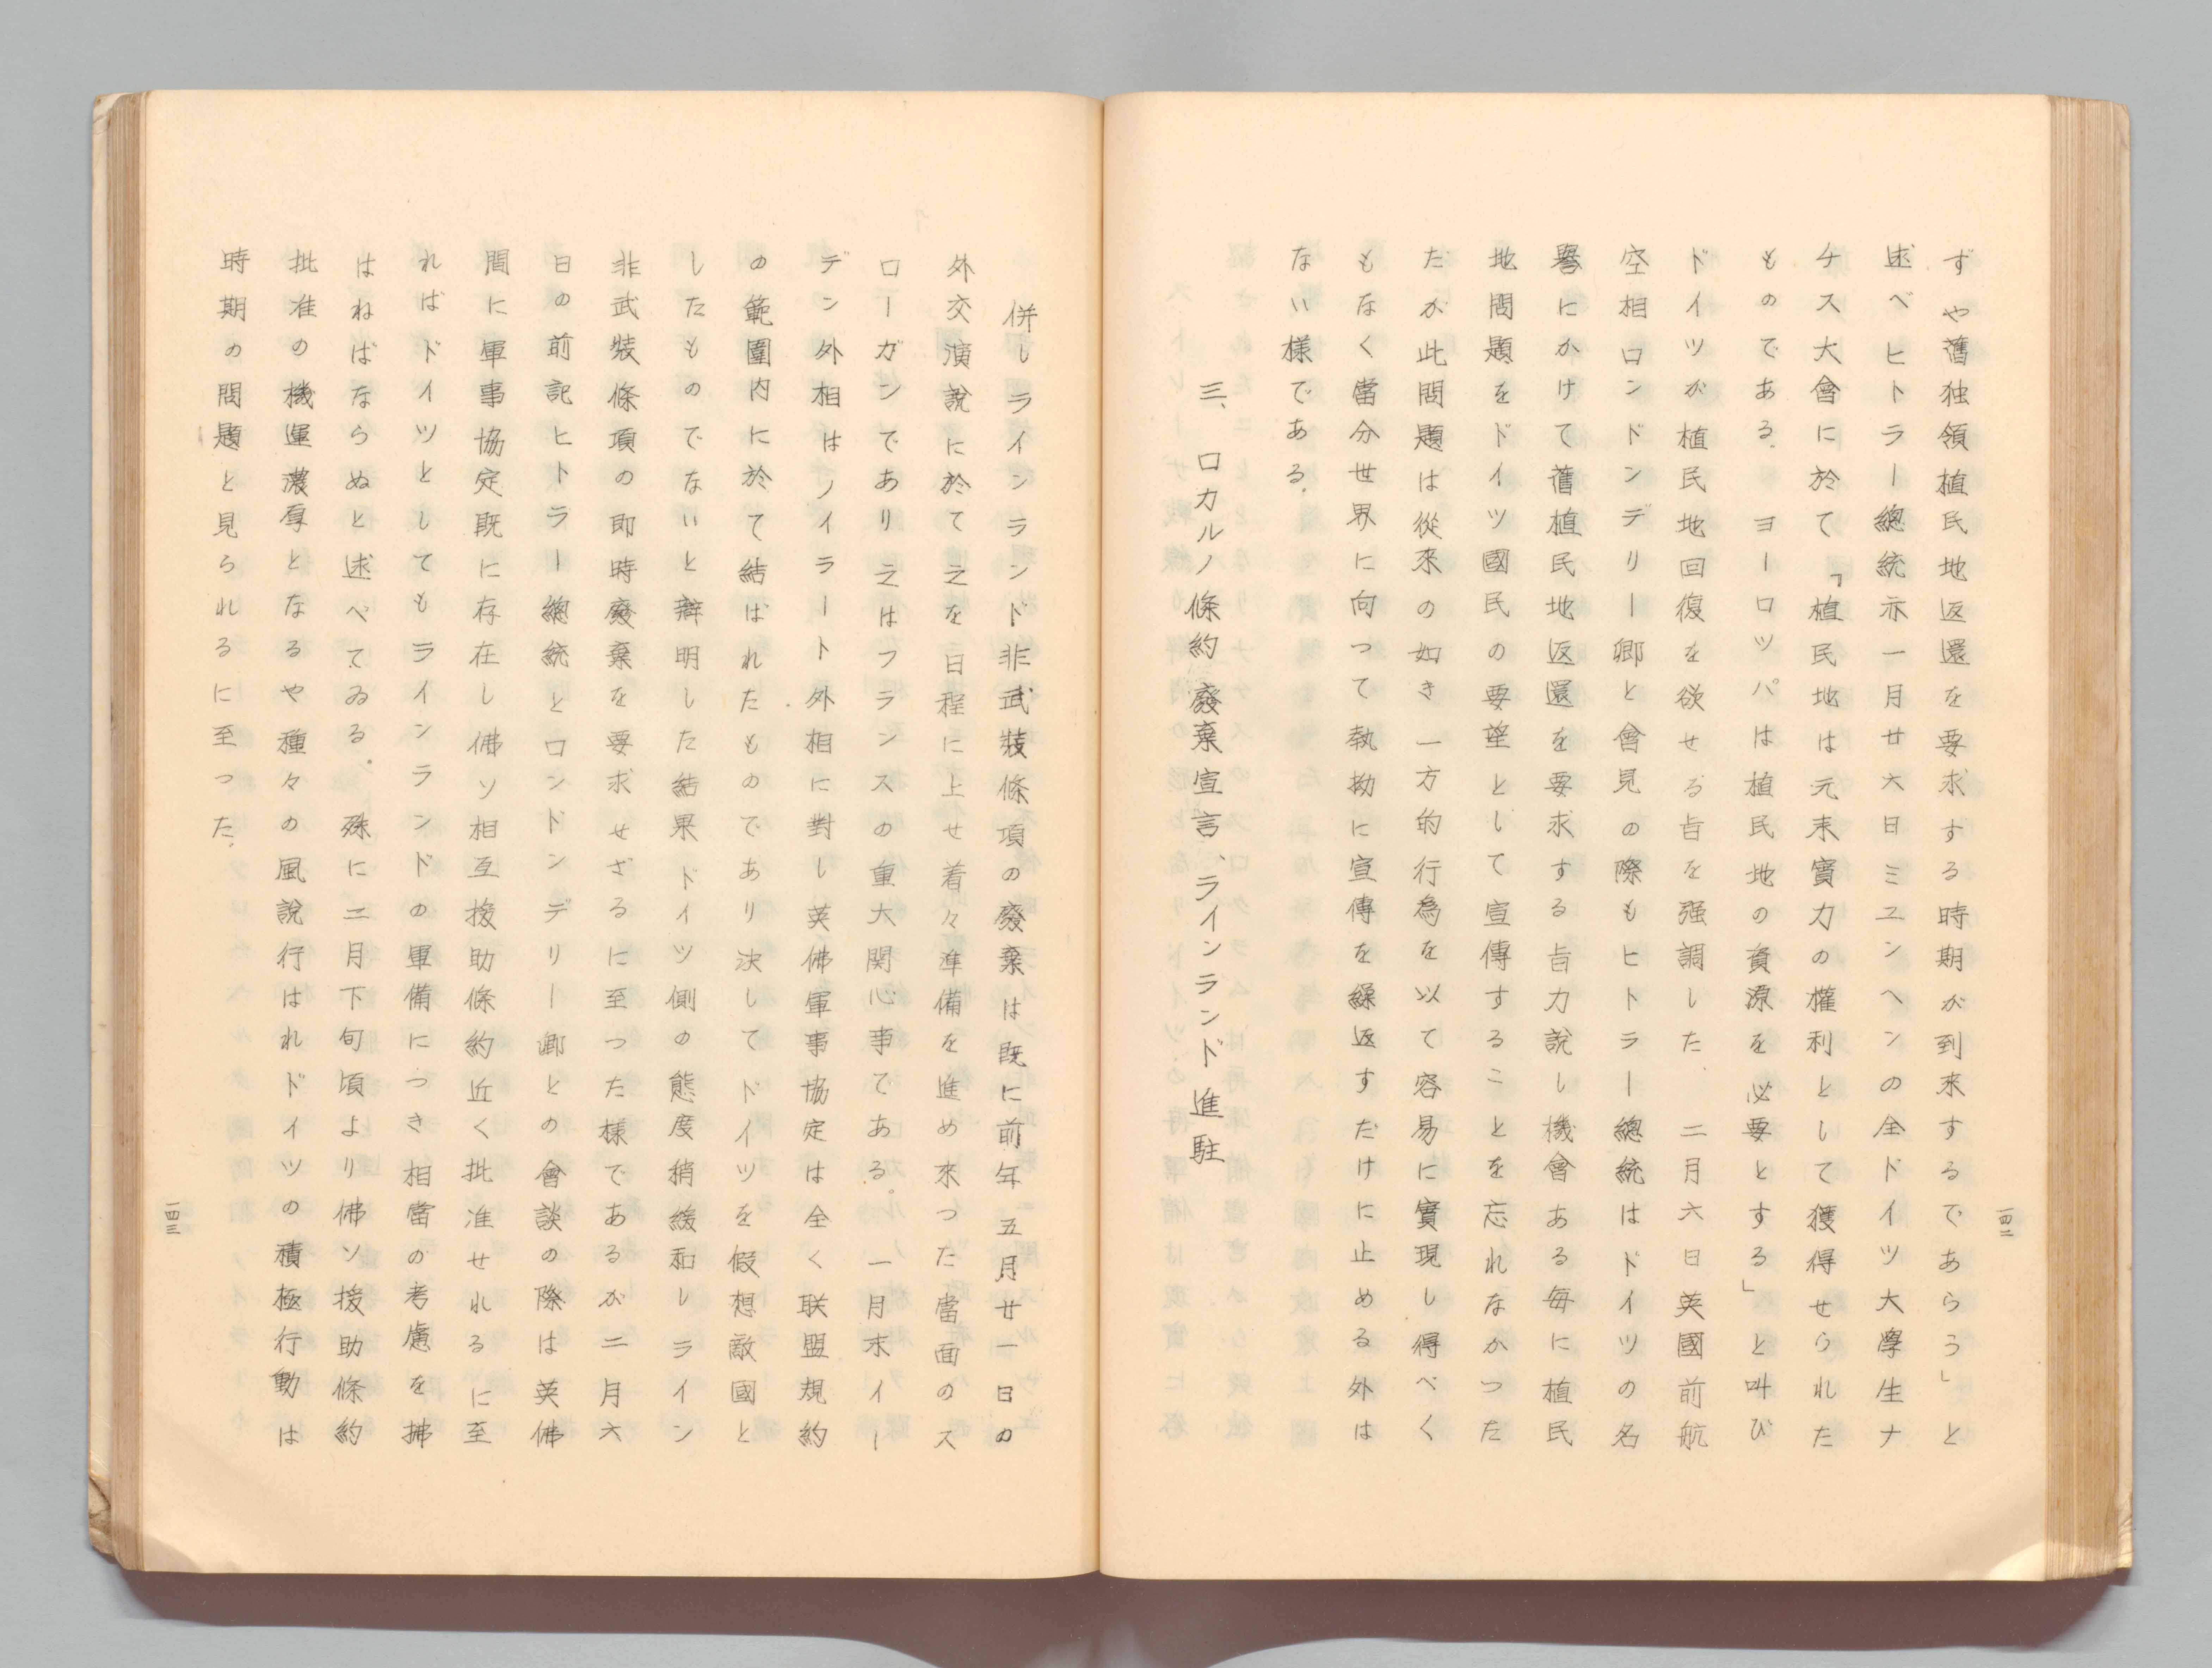 ずや舊独領植民地返還を要求する時期が到来するであらう」と
述べヒトラー總統亦一月廿六日ミユンヘンの全ドイツ大學生ナ
チス大會に於て「植民地は元来實力の權利として獲得せられた
ものである．ヨーロツパは植民地の資源を必要とする」と叫び
ドイツが植民地回復を欲せる旨を强調した．二月六日英國前航
空相ロンドンデリー卿と會見の際もヒトラー總統はドイツの名
譽にかけて舊植民地返還を要求する旨力說し機會ある毎に植民
地問題をドイツ國民の要望として宣傳することを忘れなかつた
だが此問題は從来の如き一方的行為を以て容易に實現し得べく
もなく當分世界に向つて執拗に宣傳を繰返すだけに止める外は
ない様である．
三、ロカルノ條約廢棄宣言、ラインランド進駐
一四二
併しラインランド非武裝條項の廢棄は既に前年五月廿一日の
外交演說に於て之を日程に上せ着々準備を進め来つた當面のス
ローガンであり之はフランスの重大関心事である。一月末イー
デン外相はノイラート外相に對し英佛軍事協定は全く联盟規約
の範圍内に於て結ばれたものであり決してドイツを假想敵國と
したものでないと辯明した結果ドイツ側の態度稍緩和しライン
非武裝條項の即時廢棄を要求せざるに至つた様であるが二月六
日の前記ヒトラー總統とロンドンデリー卿との會談の際は英佛
間に軍事協定既に存在し佛ソ相互援助條約近く批准せれるに至
ればドイツとしてもラインランドの軍備につき相當の考慮を拂
はねばならぬと述べてゐる。殊に二月下旬頃より佛ソ援助條約
批准の機運濃厚となるや種々の風說行はれドイツの積極行動は
時期の問題と見られるに至つた．
一四三